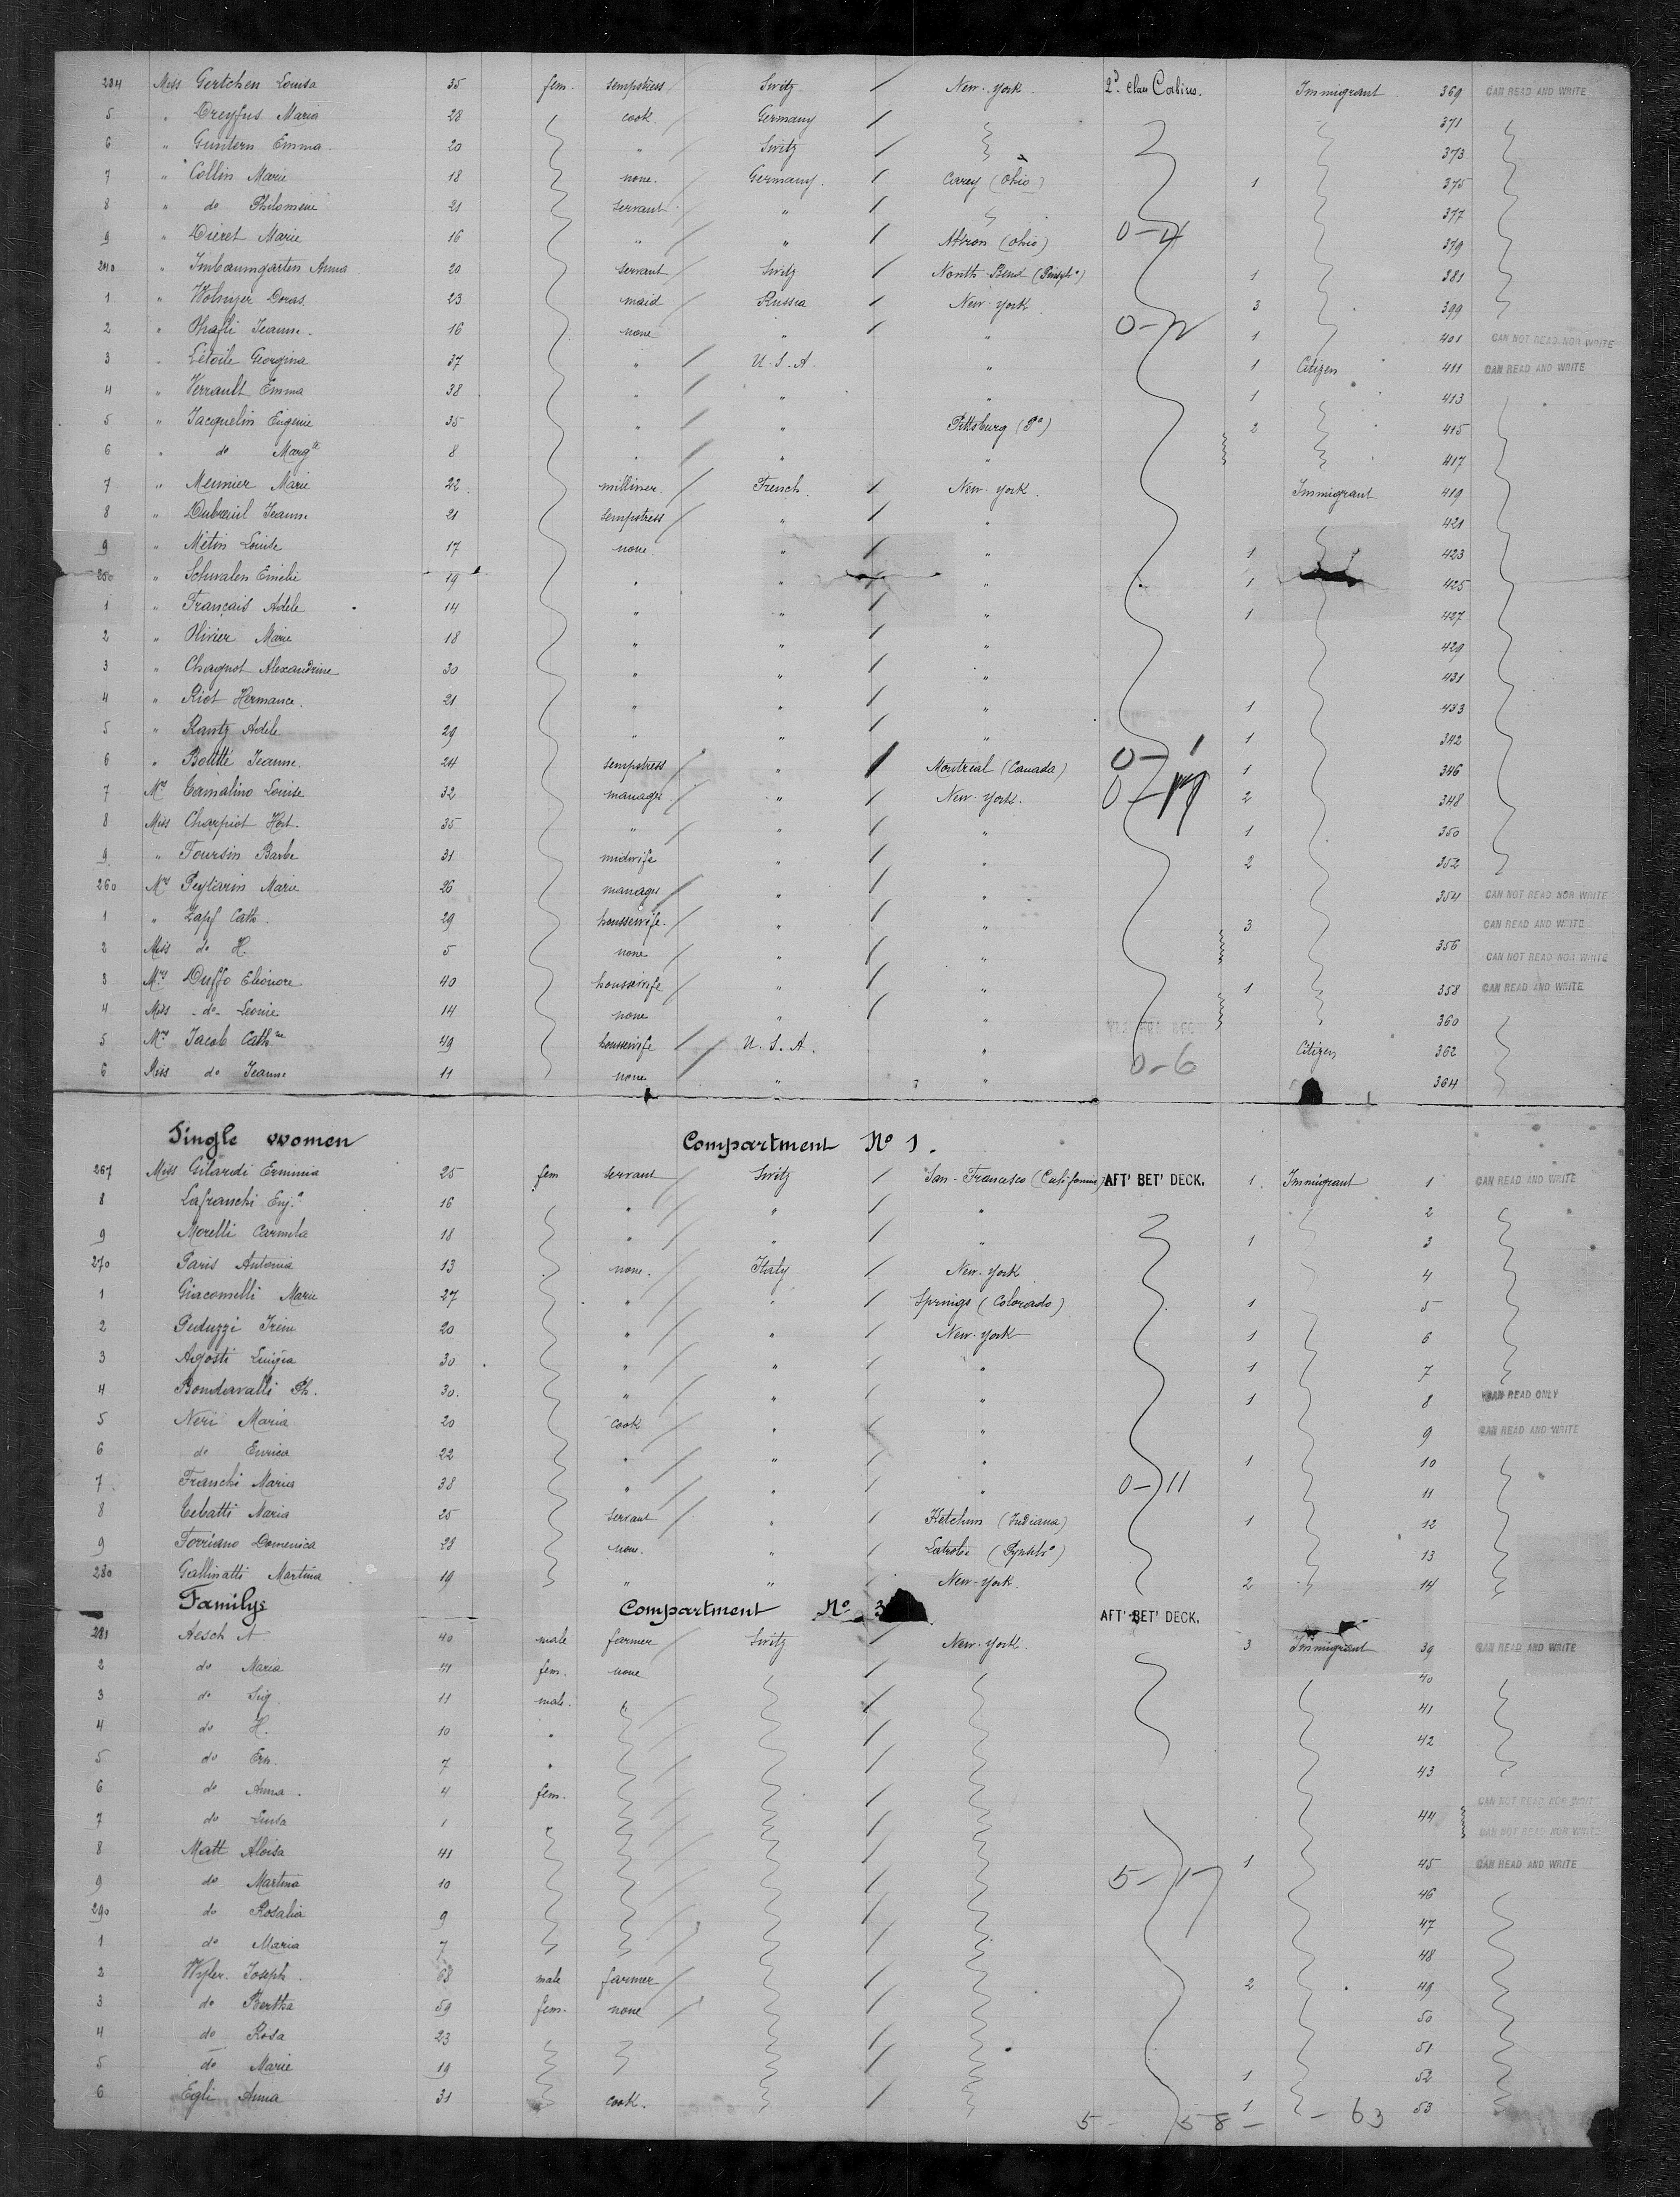 234 Miss Gertchen Louisa 35 fem. sempstress Switz New-York 2d class Cabins. Immigrant 369 CAN READ AND WRITE
5 " Dreyfus Maria 28 cook Germany 371
6 " Guntern Emma 20 " Switz 373
7 " Collin Marie 18 none. Germany. Carey (Ohio) 1 375
8 " do Philomene 21 servant " 377
9 " Dieret Marie 16 " " Akron (Ohio) 0-4 379
240 " Imbaumgarten Anna 20 servant Switz North Bend 1 381
1 " Holnyer Doras 23 maid Russia New-York 3 399
2 " Phafli Jeanne 16 none " " 1 401 CAN NOT READ NOR WRITE
3 " Létoile Georgina 37 " U.S.A. " 1 Citizen 411 CAN READ AND WRITE
4 " Verrault Emma 38 " " " 1 413
5 " Jacquelin Eugénie 35 " " Pittsburg (Pa) 2 415
6 " do Margte 8 " " " 417
7 " Meunier Marie 22 milliner French New-York Immigrant 419
8 " Dubreuil Jeanne 21 sempstress " " 421
9 " Métin Louise 17 none " " 1 423
250 " Schwalen Emélie 19 " " " 1 425
1 " Français Adele 14 " " " 1 427
2 " Olivier Marie 18 " " " 429
3 " Chagnot Alexandrine 30 " " " 431
4 " Riot Hermance 21 " " " 1 433
5 " Rantz Adele 29 " " " 1 342
6 " Boutté Jeanne 24 sempstress " Montreal (Canada) 0-1 1 346
7 Mrs Camalino Louise 32 manager " New-York. 2 348
8 Miss Charpiot Hort. 35 " " " 1 350
9 " Toursin Barbe 31 midwife " " 2 352
260 Mrs Peytarin Marie 26 manager " " 354 CAN NOT READ NOR WRITE
1 " Zapf Cath. 29 houssewife " " 3 CAN READ AND WRITE
2 Miss do H. 5 none " " 356 CAN NOT READ NOR WRITE
3 Mrs Duffo Eléonore 40 houssewife " " 1 358 CAN READ AND WRITE
4 Miss do Leonie 14 none " " 360
5 Mrs Jacob Cathne 49 houssewife U.S.A. " 0-6 Citizen 362
6 Miss do Jeanne 11 none " " 364
Single women Compartment No 1.
267 Miss Gilardi Erminia 25 fem servant Switz San-Francesco (California) AFT' BET' DECK. 1 Immigrant 1 CAN READ AND WRITE
8 Lafranchi Eug.a 16 " " " 2
9 Morelli Carmela 18 " " " 1 3
270 Paris Antonia 13 none. Italy New-York 4
1 Giacomelli Marie 27 " " Springs (Colorado) 1 5
2 Peduzzi Irene 20 " " New-York 1 6
3 Agosti Luigia 30 " " " 1 7
4 Bondavalli Ph. 30. " " " 1 8 CAN READ ONLY
5 Neri Maria 20 cook " " 9 CAN READ AND WRITE
6 do Enrica 22 " " " 1 10
7 Franchi Maria 38 " " " 0-11 11
8 Cebatti Maria 25 servant " Ketchum (Indiana) 1 12
9 Torriano Domenica 28 none. " Latrobe 13
280 Gallinatti Martina 19 " " New-York. 2 14
Familys Compartment No 3 AFT' BET' DECK.
281 Aesch A 40 male farmer Switz New-York. 3 Immigrant 39 CAN READ AND WRITE
2 do Maria fem. none 40
3 do Sig. 11 male. " 41
4 do H. 10 " 42
5 do Ern. 7 " 43
6 do Anna 4 fem. CAN NOT READ NOR WRITE
7 do Luisa 1 44 CAN NOT READ NOR WRITE
8 Matt Aloisa 41 1 45 CAN READ AND WRITE
9 do Martina 10 5-17 46
290 do Rosalia 9 47
1 do Maria 7 48
2 Wyler Joseph 68 male farmer 2 49
3 do Bertha 59 fem. none 50
4 do Rosa 23 51
5 do Marie 19 1 52
6 Egli Anna 31 cook. 1 53
5- 58- -63